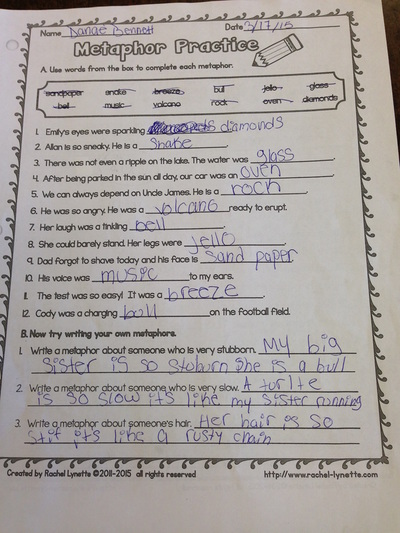 Name Danae Bennett Date 3/17/15
Metaphor Practice
A. Use words from the box to complete each metaphor.
sandpaper snake breeze bull jello glass
bell music volcano rock oven diamonds
1. Emily's eyes were sparkling diamonds
2. Allan is so sneaky. He is a snake.
3. There was not even a ripple on the lake. The water was glass
4. After being parked in the sun all day, our car was an oven
5. We can always depend on Uncle James. He is a rock
6. He was so angry. He was a volcano ready to erupt.
7. Her laugh was a tinkling bell
8. She could barely stand. Her legs were jello
9. Dad forgot to shave today and his face is sand paper
10. His voice was music to my ears.
11. The test was so easy! It was a breeze.
12. Cody was a charging bull on the football field.
B. Now try writing your own metaphors.
1. Write a metaphor about someone who is very stubborn. My big
sister is so stuborn she is a bull
2. Write a metaphor about someone who is very slow. A turlte
is so slow it's like my sister running
3. Write a metaphor about someone's hair. Her hair is so
stif it's like a rusty chain
Created by Rachel Lynette ©2011-2015 all rights reserved http://www.rachel-lynette.com